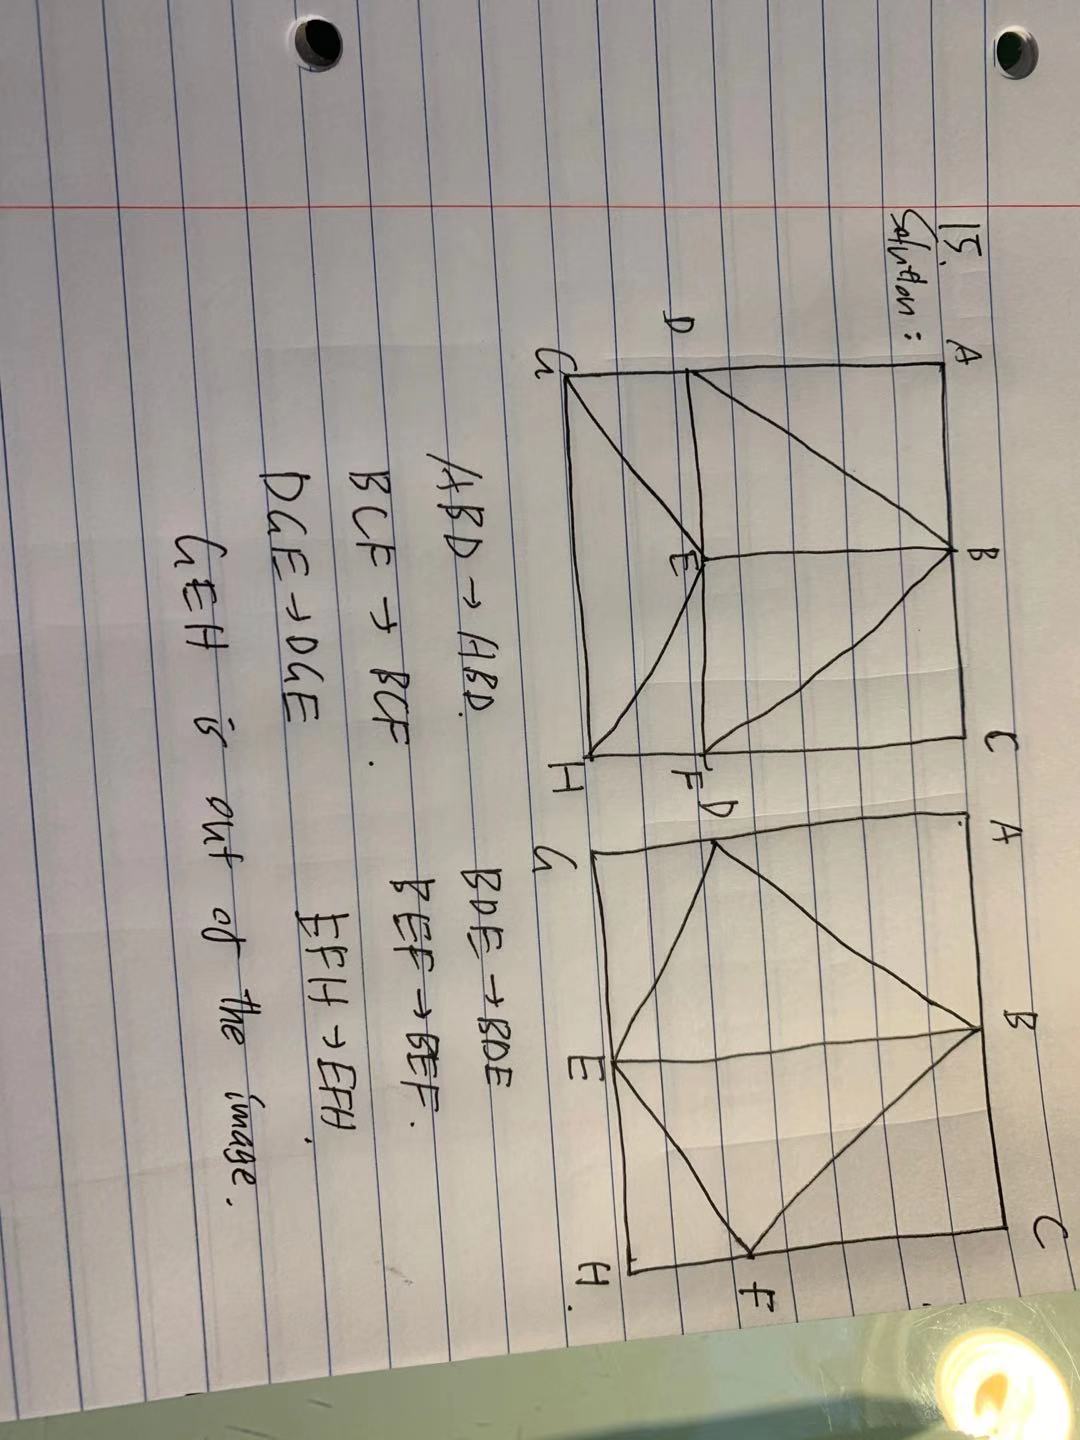 15.
Solution :
A B C A B C
D E F D F
G H G E H.
ABD → ABD. BDE → BDE
BCF → BCF. BEF → BEF.
DGE → DGE EFH → EFH.
GEH is out of the image.